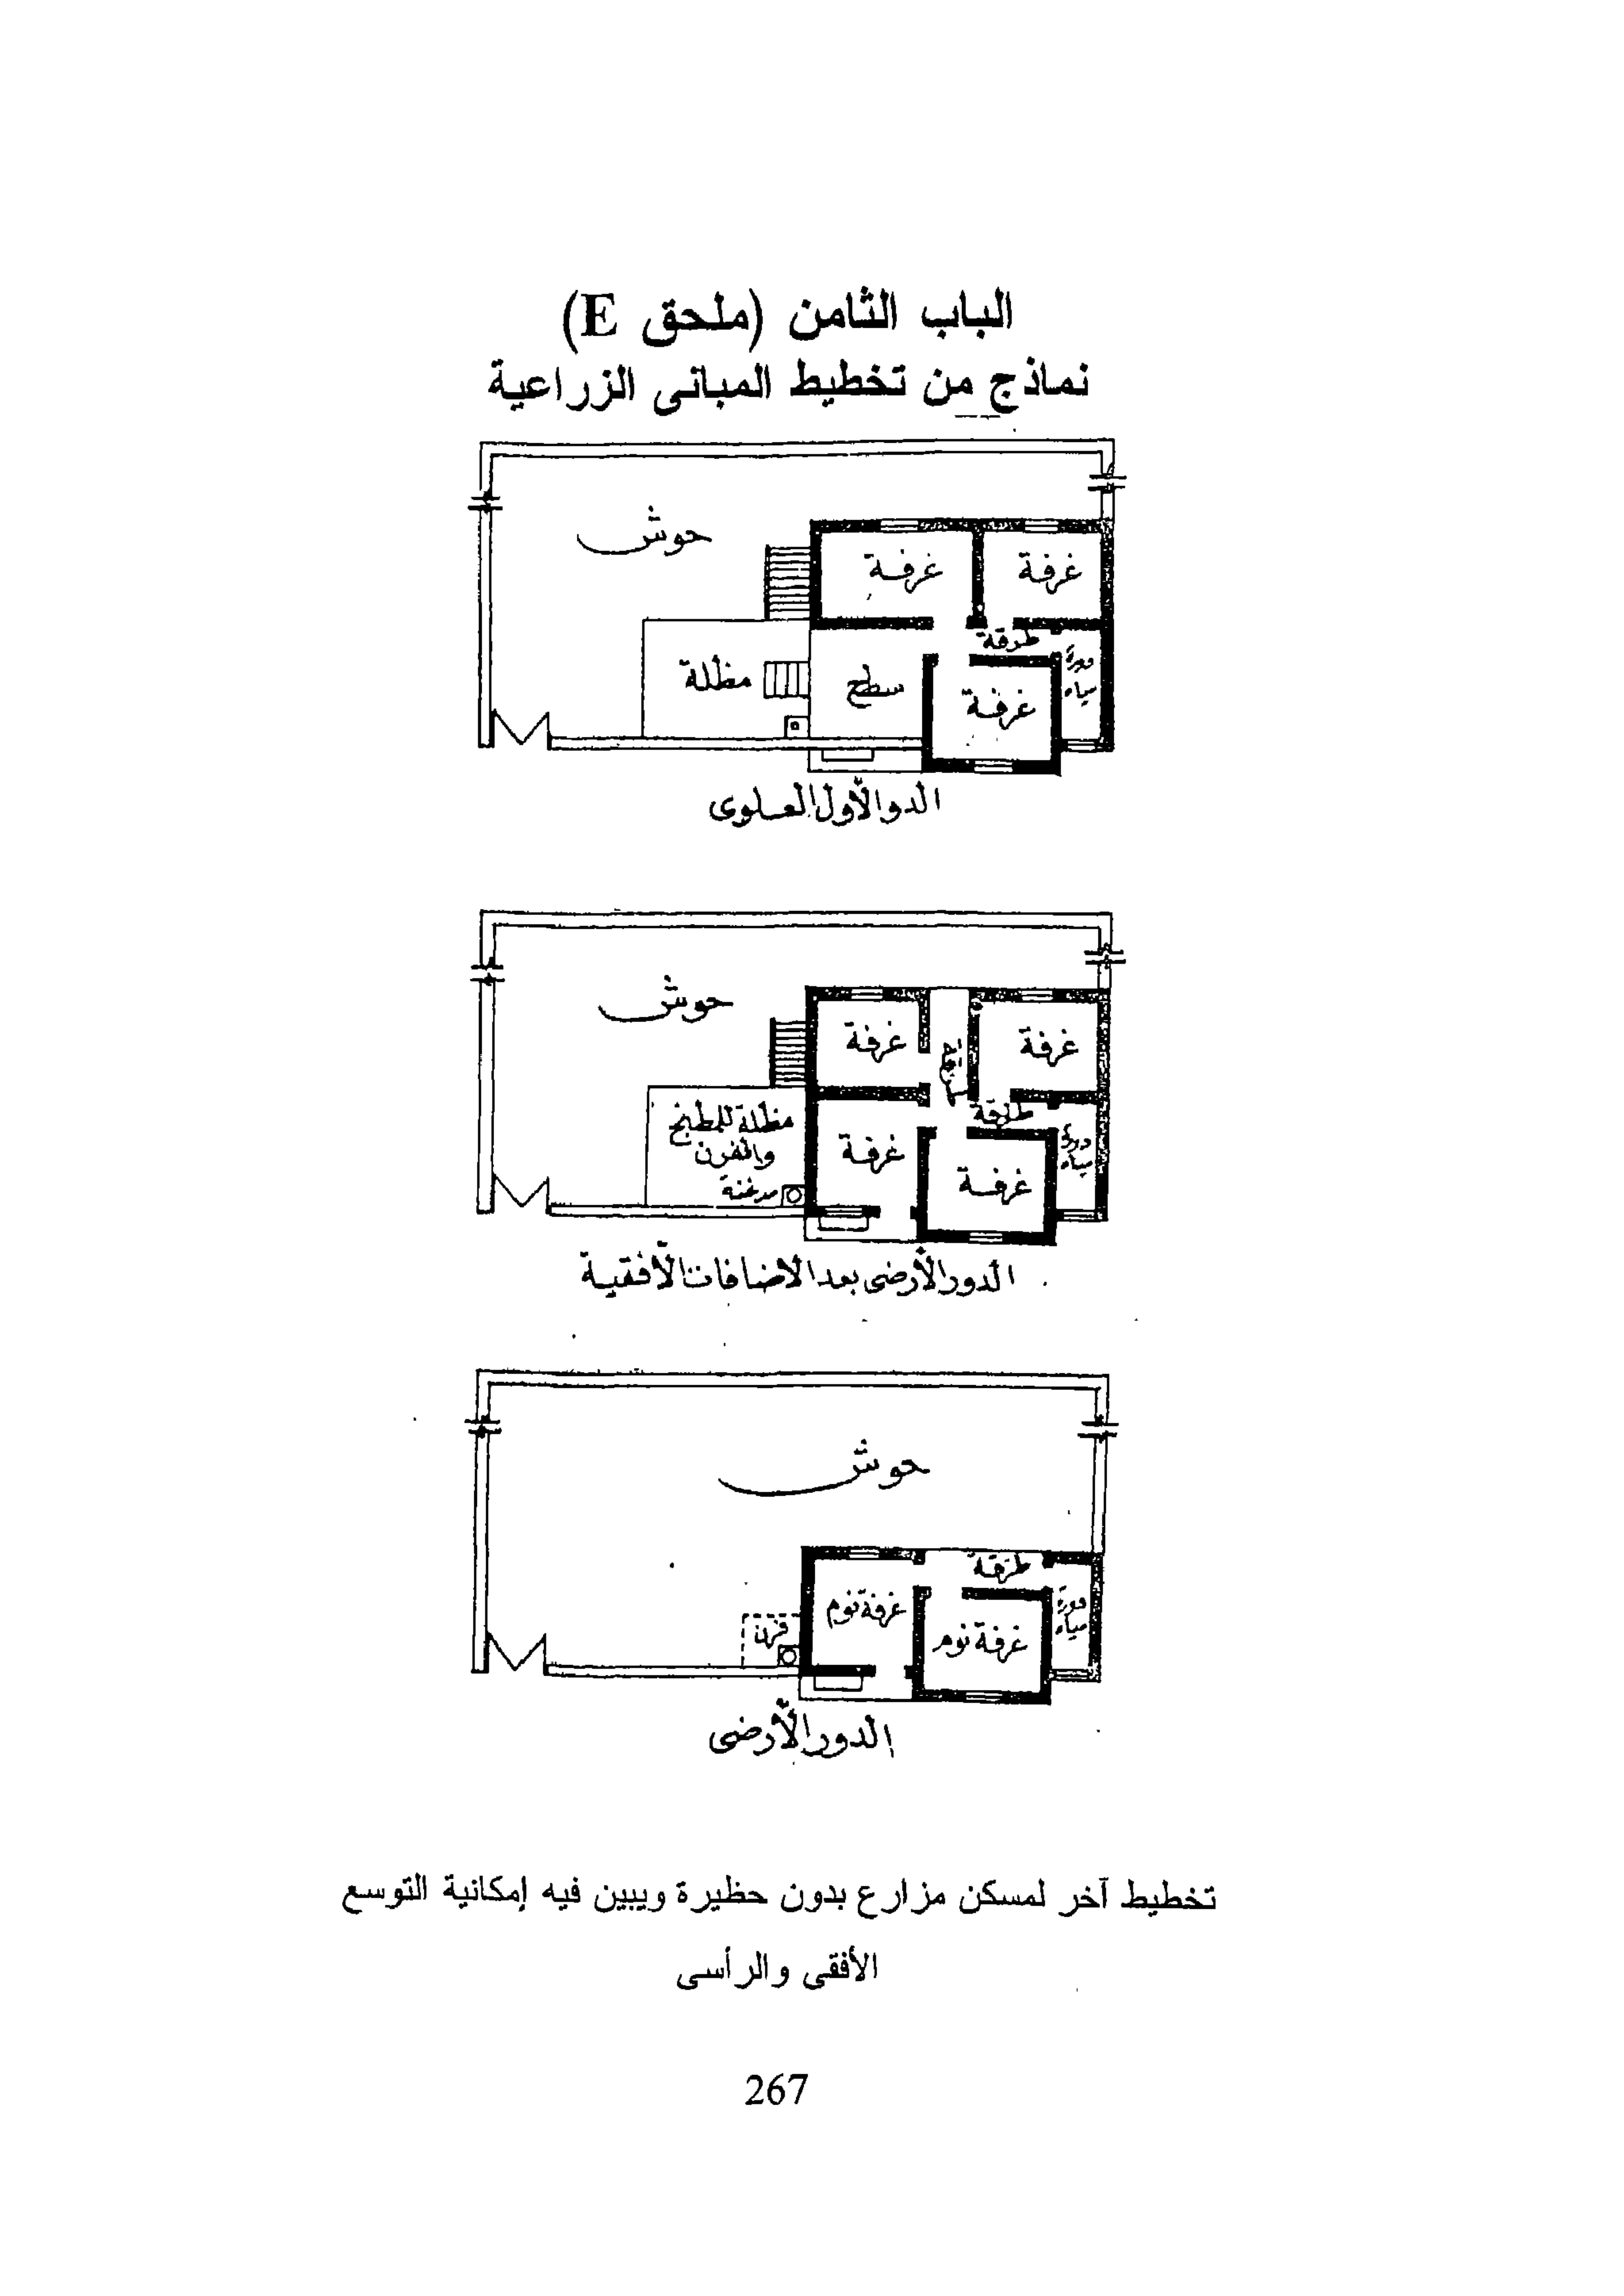 الباب الثامن (ملحق E)
نماذج من تخطيط المبانى الزراعية
حوش
غرفة
غرفة
طرقة
دورة
مياه
مظلة
سطح
غرفة
الدو الأول العلوى
حوش
غرفة
غرفة
طرقة
طرقة
مظلة للمطبخ
والفرن
مدخنة
غرفة
غرفة
دورة
مياه
الدور الأرضى بعد الاضافات الأفقية
حوش
طرقة
دورة
مياه
غرفة نوم
غرفة نوم
فرن
الدور الأرضى
تخطيط آخر لمسكن مزارع بدون حظيرة ويبين فيه إمكانية التوسع
الأفقى والرأسى
267